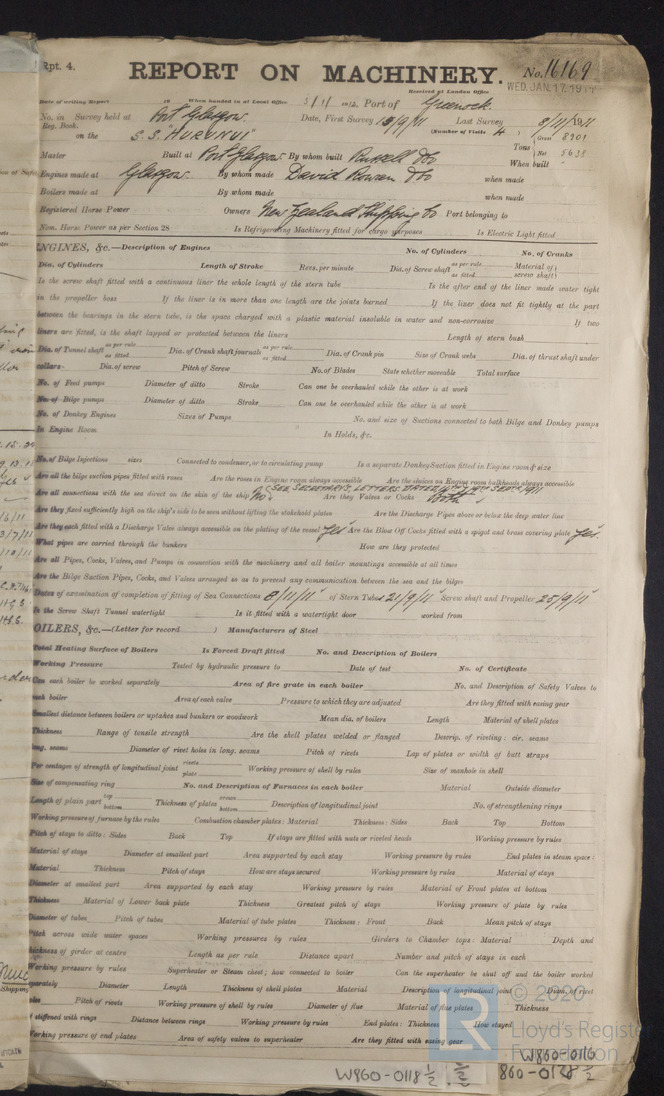 Rpt. 4.
REPORT ON MACHINERY.
No. 16169
Received at London Office
WED. JAN. 17. 191
Date of writing Report 19 When handed in at Local Office 5/1/1912 Port of Greenock
No. in Survey held at Port Glasgow Date, First Survey 13/9/11 Last Survey 8/11/1911
Reg. Book. (Number of Visits 4)
on the S.S. "HURUNUI" Tons Gross 8901
Net 5638
Master Built at Port Glasgow By whom built Russell & Co When built
Engines made at Glasgow By whom made David Rowan & Co when made
Boilers made at By whom made when made
Registered Horse Power Owners New Zealand Shipping Co Port belonging to
Nom. Horse Power as per Section 28 Is Refrigerating Machinery fitted for cargo purposes Is Electric Light fitted
ENGINES, &c.—Description of Engines No. of Cylinders No. of Cranks
Dia. of Cylinders Length of Stroke Revs. per minute Dia. of Screw shaft as per rule as fitted Material of screw shaft
Is the screw shaft fitted with a continuous liner the whole length of the stern tube Is the after end of the liner made water tight
in the propeller boss If the liner is in more than one length are the joints burned If the liner does not fit tightly at the part
between the bearings in the stern tube, is the space charged with a plastic material insoluble in water and non-corrosive If two
liners are fitted, is the shaft lapped or protected between the liners Length of stern bush
Dia. of Tunnel shaft as per rule as fitted Dia. of Crank shaft journals as per rule as fitted Dia. of Crank pin Size of Crank webs Dia. of thrust shaft under
collars Dia. of screw Pitch of Screw No. of Blades State whether moveable Total surface
No. of Feed pumps Diameter of ditto Stroke Can one be overhauled while the other is at work
No. of Bilge pumps Diameter of ditto Stroke Can one be overhauled while the other is at work
No. of Donkey Engines Sizes of Pumps No. and size of Suctions connected to both Bilge and Donkey pumps
In Engine Room In Holds, &c.
No. of Bilge Injections sizes Connected to condenser, or to circulating pump Is a separate Donkey Suction fitted in Engine room & size
Are all the bilge suction pipes fitted with roses Are the roses in Engine room always accessible Are the sluices on Engine room bulkheads always accessible
SEE SECRETARY'S LETTERS DATED
Are all connections with the sea direct on the skin of the ship No Are they Valves or Cocks Both
Are they fixed sufficiently high on the ship's side to be seen without lifting the stokehold plates Are the Discharge Pipes above or below the deep water line
Are they each fitted with a Discharge Valve always accessible on the plating of the vessel Yes Are the Blow Off Cocks fitted with a spigot and brass covering plate Yes.
What pipes are carried through the bunkers How are they protected
Are all Pipes, Cocks, Valves, and Pumps in connection with the machinery and all boiler mountings accessible at all times
Are the Bilge Suction Pipes, Cocks, and Valves arranged so as to prevent any communication between the sea and the bilges
Dates of examination of completion of fitting of Sea Connections 8/11/11 of Stern Tube 21/9/11 Screw shaft and Propeller 25/9/11
Is the Screw Shaft Tunnel watertight Is it fitted with a watertight door worked from
OILERS, &c.—(Letter for record ) Manufacturers of Steel
Total Heating Surface of Boilers Is Forced Draft fitted No. and Description of Boilers
Working Pressure Tested by hydraulic pressure to Date of test No. of Certificate
Can each boiler be worked separately Area of fire grate in each boiler No. and Description of Safety Valves to
each boiler Area of each valve Pressure to which they are adjusted Are they fitted with easing gear
Smallest distance between boilers or uptakes and bunkers or woodwork Mean dia. of boilers Length Material of shell plates
Thickness Range of tensile strength Are the shell plates welded or flanged Descrip. of riveting: cir. seams
long. seams Diameter of rivet holes in long. seams Pitch of rivets Lap of plates or width of butt straps
Per centages of strength of longitudinal joint rivets plate Working pressure of shell by rules Size of manhole in shell
Size of compensating ring No. and Description of Furnaces in each boiler Material Outside diameter
Length of plain part top bottom Thickness of plates crown bottom Description of longitudinal joint No. of strengthening rings
Working pressure of furnace by the rules Combustion chamber plates: Material Thickness: Sides Back Top Bottom
Pitch of stays to ditto: Sides Back Top If stays are fitted with nuts or riveted heads Working pressure by rules
Material of stays Diameter at smallest part Area supported by each stay Working pressure by rules End plates in steam space:
Material Thickness Pitch of stays How are stays secured Working pressure by rules Material of stays
Diameter at smallest part Area supported by each stay Working pressure by rules Material of Front plates at bottom
Thickness Material of Lower back plate Thickness Greatest pitch of stays Working pressure of plate by rules
Diameter of tubes Pitch of tubes Material of tube plates Thickness: Front Back Mean pitch of stays
Pitch across wide water spaces Working pressures by rules Girders to Chamber tops: Material Depth and
thickness of girder at centre Length as per rule Distance apart Number and pitch of stays in each
Working pressure by rules Superheater or Steam chest; how connected to boiler Can the superheater be shut off and the boiler worked
separately Diameter Length Thickness of shell plates Material Description of longitudinal joint Diam. of rivet
holes Pitch of rivets Working pressure of shell by rules Diameter of flue Material of flue plates Thickness
If stiffened with rings Distance between rings Working pressure by rules End plates: Thickness How stayed
Working pressure of end plates Area of safety valves to superheater Are they fitted with easing gear
© 2020
Lloyd's Register
Foundation
W860-0116
W860-0118 ½